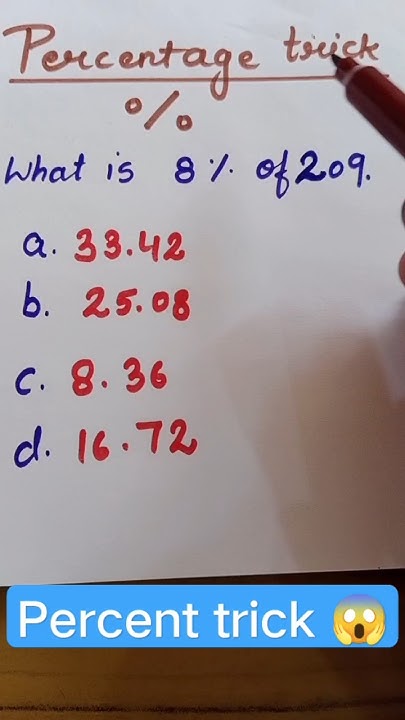 Percentage trick
%
What is 8% of 209.
a. 33.42
b. 25.08
c. 8.36
d. 16.72
Percent trick 😱